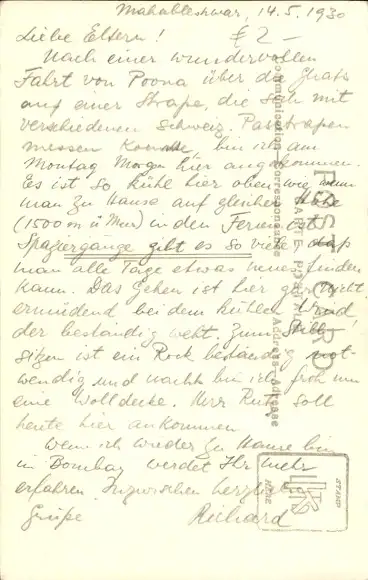 Mahableshwar, 14.5.1930
Liebe Eltern! £ 2 –
Nach einer wundervollen
Fahrt von Poona über die Ghats
auf einer Straße, die sich mit
verschiedenen schweiz. Passstrassen
messen könnte, bin ich am
Montag Morgen hier angekommen.
Es ist so kühl hier oben wie wenn
man zu Hause auf gleicher Höhe
(1500 m ü Meer) in den Ferien ist.
Spaziergänge gibt es so viele daß
man alle Tage etwas neues finden
kann. Das Gehen ist hier gar nicht
ermüdend bei dem kühlen Wind
der beständig weht. Zum Still-
sitzen ist ein Rock beständig not-
wendig und nachts bin ich froh um
eine Wolldecke. Herr Rutz soll
heute hier ankommen.
Wenn ich wieder zu Hause bin
in Bombay werdet Ihr mehr
erfahren. Inzwischen herzliche
Grüße Richard
POST CARD
CARTE POSTALE
Communication Correspondence
Address-Adresse
STAMP
HERE